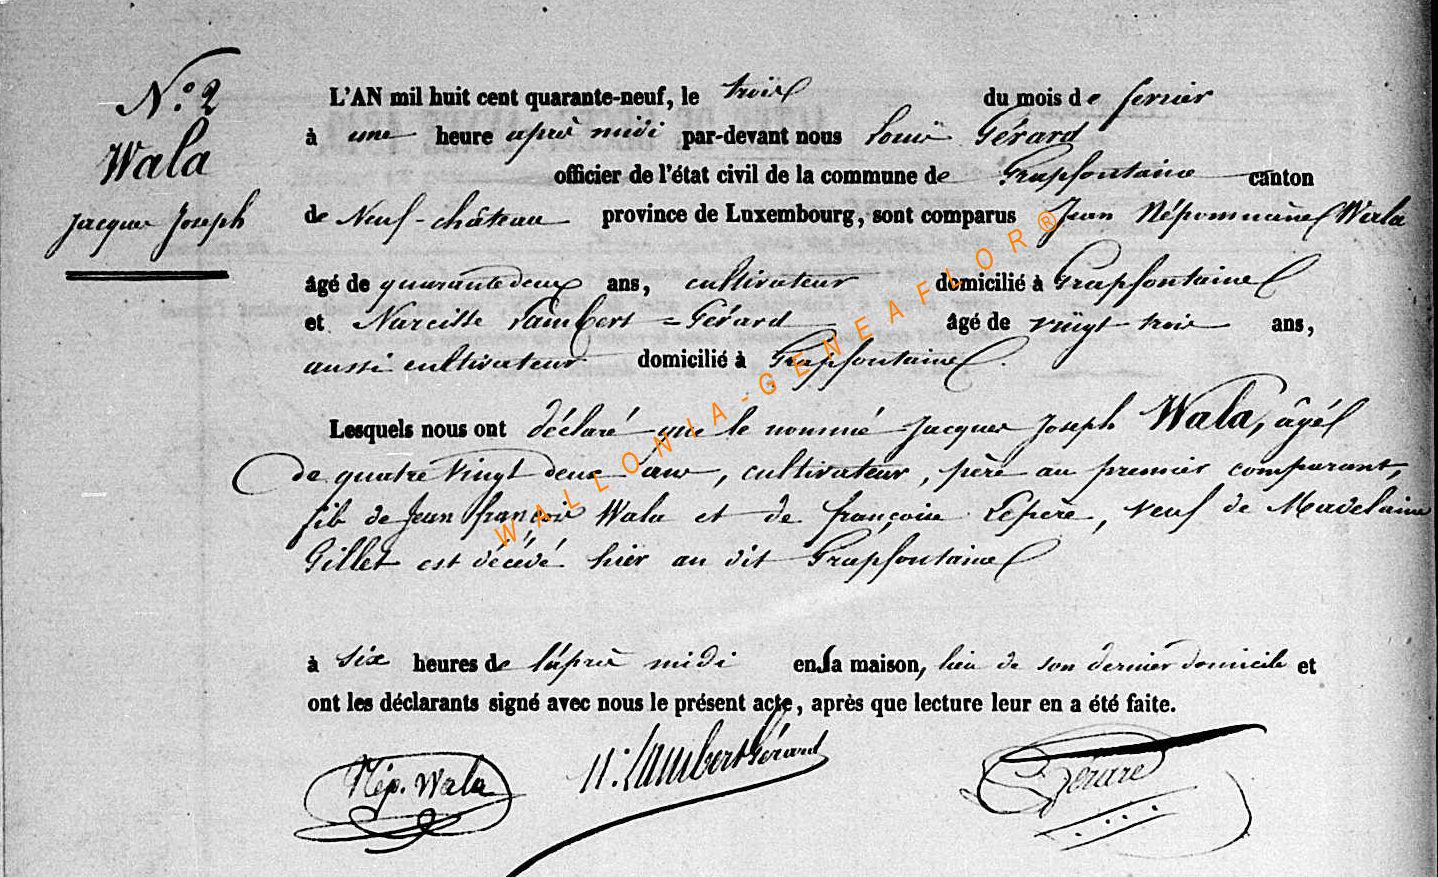 N.º 2
Wala
Jacques Joseph
L'AN mil huit cent quarante-neuf, le trois du mois de fevrier
à une heure après midi par-devant nous Louis Gérard
officier de l'état civil de la commune de Grapfontaine canton
de Neuf-château province de Luxembourg, sont comparus Jean Népomucène Wala
âgé de quarante deux ans, cultivateur domicilié à Grapfontaine
et Narcisse Lambert=Gérard âgé de vingt-trois ans,
aussi cultivateur domicilié à Grapfontaine.
Lesquels nous ont déclaré que le nommé Jacques Joseph Wala, âgé
de quatre vingt deux ans, cultivateur, père au premier comparant,
fils de Jean françois Wala et de françoise Lepere, veuf de Madelaine
Gillet est décédé hier au dit Grapfontaine
à six heures de l'après midi en sa maison, lieu de son dernier domicile et
ont les déclarants signé avec nous le présent acte, après que lecture leur en a été faite.
Nép. Wala N. Lambert Gérard Gérard
WALLONIA-GENEAFLOR®